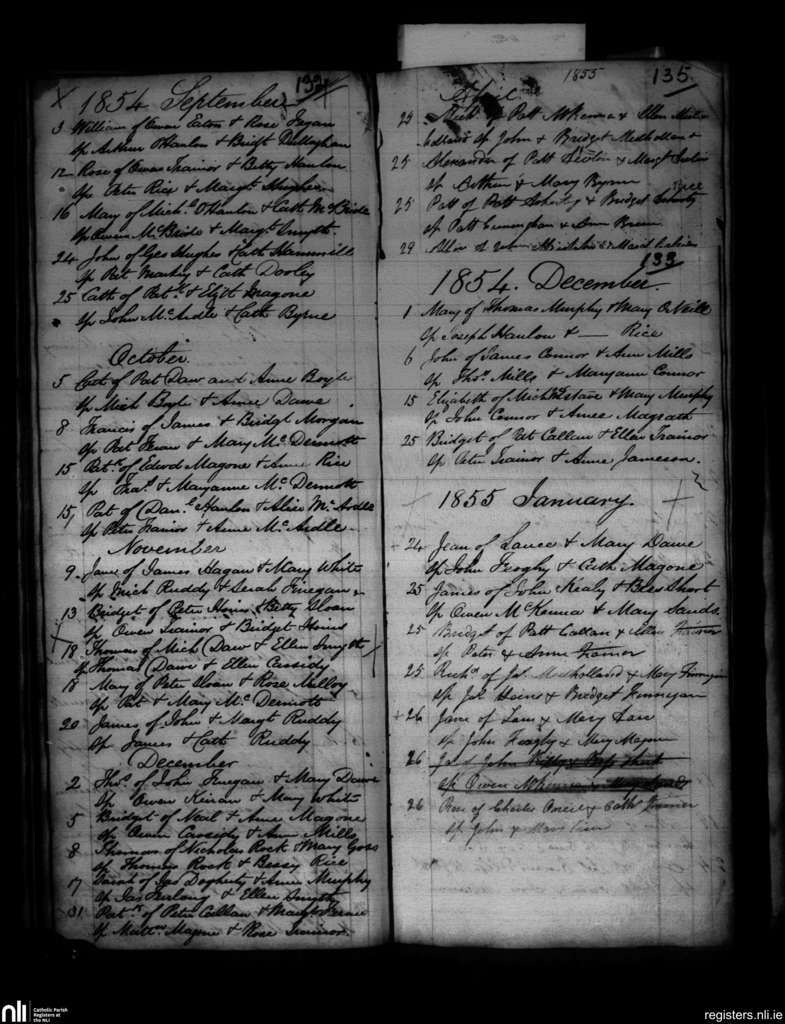 132
1854 September
3 William of Owen Eaton & Rose Fagan
Sp Arthur O'Hanlon & Bridt Dullaghan
12 Rose of Owen Trainor & Betty Hanlon
Sp Peter Rice & Margt Hughes
16 Mary of Mich.l O'Hanlon & Cath McBride
Sp Owen McBride & Margt Smyth
24 John of Geo Hughes Cath Hammill
Sp Pat Markey & Cath Dooley
25 Cath of Patk & Elizt Magone
Sp John McArdle & Cath Byrne
October
5 Cath of Pat Daw and Anne Boyle
Sp Mich Boyle & Anne Dawe
8 Francis of James & Bridgt Morgan
Sp Pat & Mary McDermott
15 Patk of Edwd Magone & Anne Rice
Sp Fras & Maryanne McDermott
15 Pat of Danl Hanlon & Alice McArdle
Sp Peter Trainor & Anne McArdle
November
9 Jane of James Hagan & Mary White
Sp Mich Ruddy & Serah Finegan
13 Bridget of Peter Hoins & Betty Sloan
Sp Owen Trainor & Bridget Hoins
18 Thomas of Mich Daw & Ellen Smyth
Sp Thomas Dawe & Ellen Cassidy
18 Mary of Peter Sloan & Rose Mulloy
Sp Pat & Mary McDermott
20 James of John & Margt Ruddy
Sp James & Cath Ruddy
December
2 Thos of John Finegan & Mary Dawe
Sp Owen Keiran & Mary White
5 Bridget of Neal & Anne Magone
Sp Owen Cassidy & Ann Mills
8 Thomas of Nicholas Rock & Mary Goss
Sp Thomas Roark & Bessy Rice
17 of Jas Dogherty & Anne Murphy
Sp Jas Furlong & Ellen Smyth
31 Patk of Peter Callan & Margt
Sp Matthw Magone & Rose Trainor
1855 135
April
25 Mich of Patt McKenna & Ellen
Sp John & Bridget Mulholland
25 Alexander of Patt & Margt
Sp Arthur & Mary Byrne
25 Patt of Patt & Bridget
Sp Patt Cunningham & Ann
29
133
1854. December.
1 Mary of Thomas Murphy & Mary O'Neill
Sp Joseph Hanlon & — Rice
6 John of James Connor & Ann Mills
Sp Thos Mills & Maryann Connor
15 Elizabeth of Mich & Mary Murphy
Sp John Connor & Anne Magrath
25 Bridget of Pat Callan & Ellen Trainor
Sp Peter Trainor & Anne Jameson
1855 January.
24 Jean of Lance & Mary Dawe
Sp John Feaghy & Cath Magone
25 James of John Kealy & Bess Short
Sp Owen McKenna & Mary Sands
25 Bridget of Patt Callan & Ellen Trainor
Sp Peter & Anne Trainor
25 Richd of Jas Mulholland & Mary Finnegan
Sp Jas Hoins & Bridget Finnegan
26 Jane of Law & Mary Law
Sp John Feaghy & Mary Magone
26 John
Sp Owen McKenna &
26 Rose of Charles Oneil & Cath Trainor
Sp John &
nli
Catholic Parish
Registers at
the NLI
registers.nli.ie